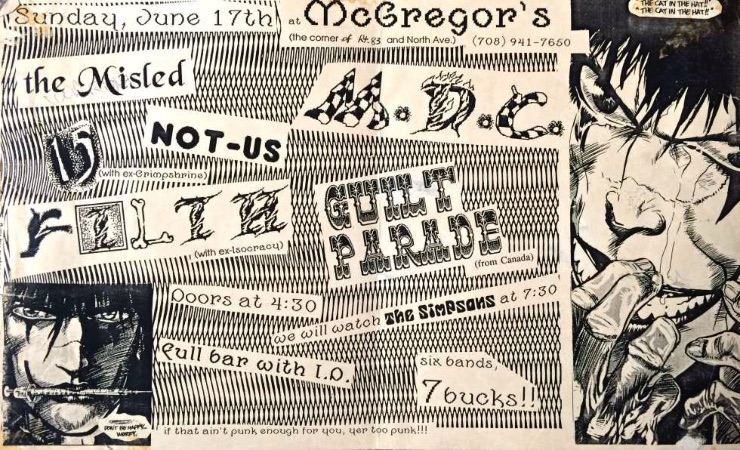 Sunday, June 17th at McGregor's
(the corner of Rt. 83 and North Ave.) (708) 941-7650
THE CAT IN THE HAT!!"
"THE CAT IN THE HAT!!"
the Misled
M.D.C.
15
NOT-US
(with ex-Crimpshrine)
FILTH
(with ex-Isocracy)
GUILT
PARADE
(from Canada)
Doors at 4:30
we will watch The Simpsons at 7:30
Full bar with I.D.
six bands,
7 bucks!!
DON'T BE HAPPY,
WORRY.
if that ain't punk enough for you, yer too punk!!!